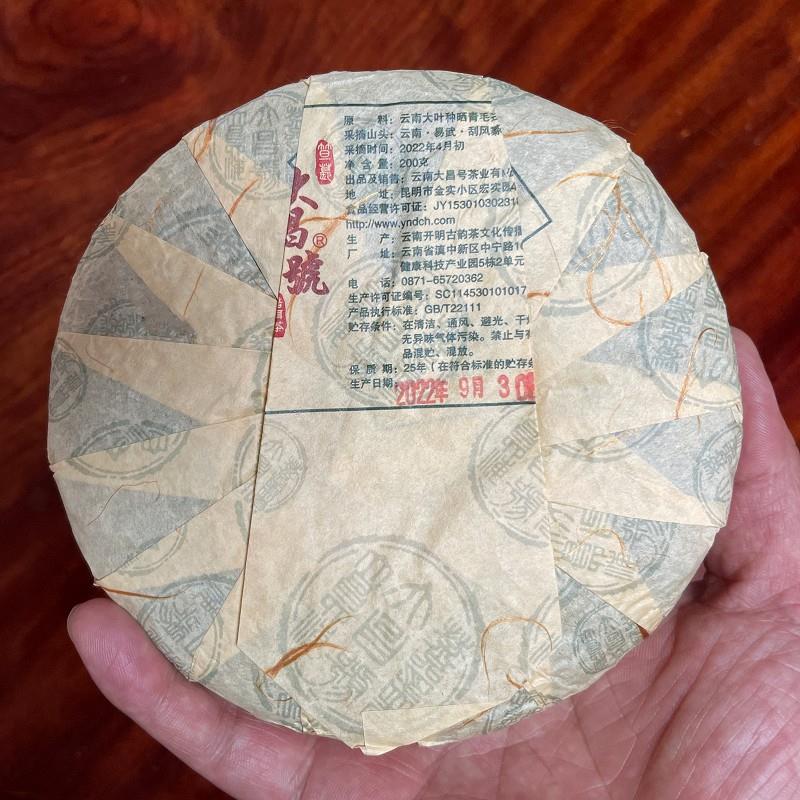 昌號
®
原　料：云南大叶种晒青毛
采摘山头：云南·易武·刮风寨
采摘时间：2022年4月初
净 含 量：200克
出品及销售：云南大昌号茶业有
地　址：昆明市金实小区宏实园
食品经营许可证：JY153010302318
http://www.yndch.com
生　产：云南开明古韵茶文化传播
厂　址：云南省滇中新区中宁路1
健康科技产业园5栋2单元
电　话：0871-65720362
生产许可证编号：SC114530101017
产品执行标准：GB/T22111
贮存条件：在清洁、通风、避光、干
无异味气体污染。禁止与
品混贮、混放。
保 质 期：25年（在符合标准的贮存条
生产日期：2022年 9月 30